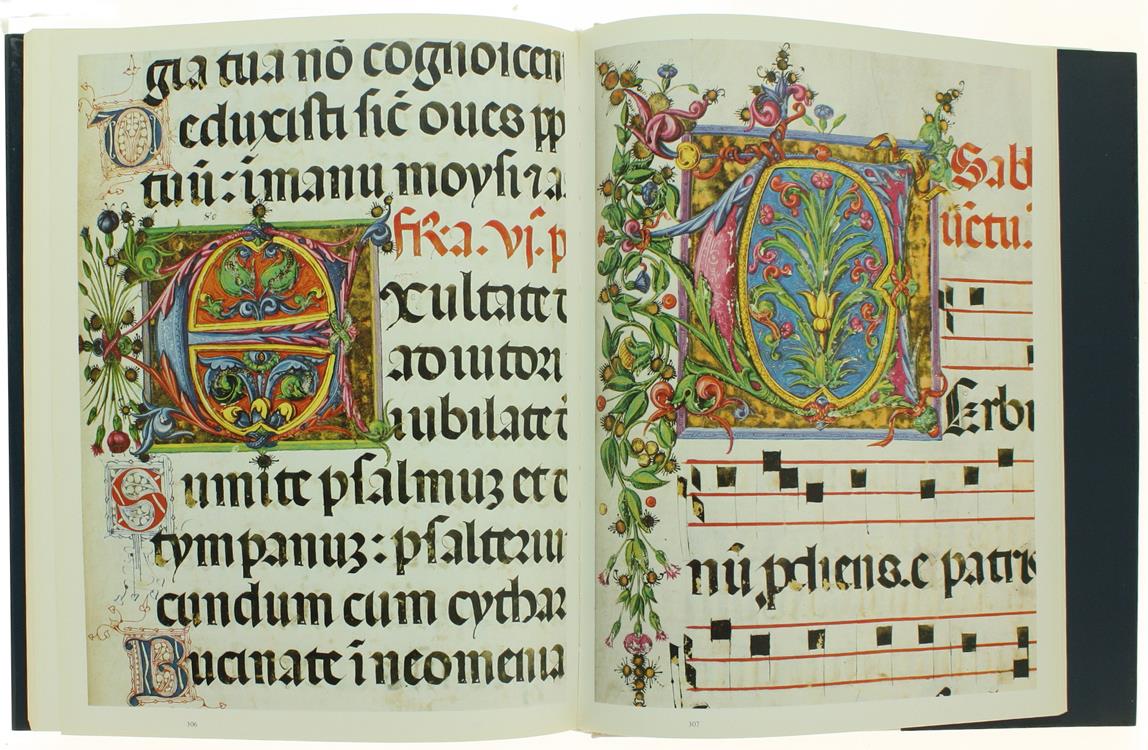 gia tua nō cognoscen
Deduxisti sic̄ oues pp
tuū: i manu moysi ⁊ a
fR.a. vj. p
Exultate
adiutori
iubilate
Sumite psalmuʒ et
tympanuʒ: psalteriu
cundum cum cythar
Bucinate ī neomenia
306
Sabb
Erbu
nū pdiens.e patris
307